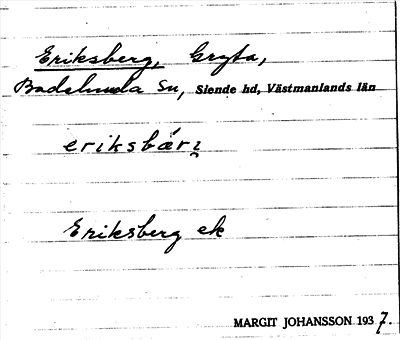 Eriksberg, Gryta,
Badelunda sn, Siende hd, Västmanlands län
eriksbärj
Eriksberg ek
MARGIT JOHANSSON 1937.